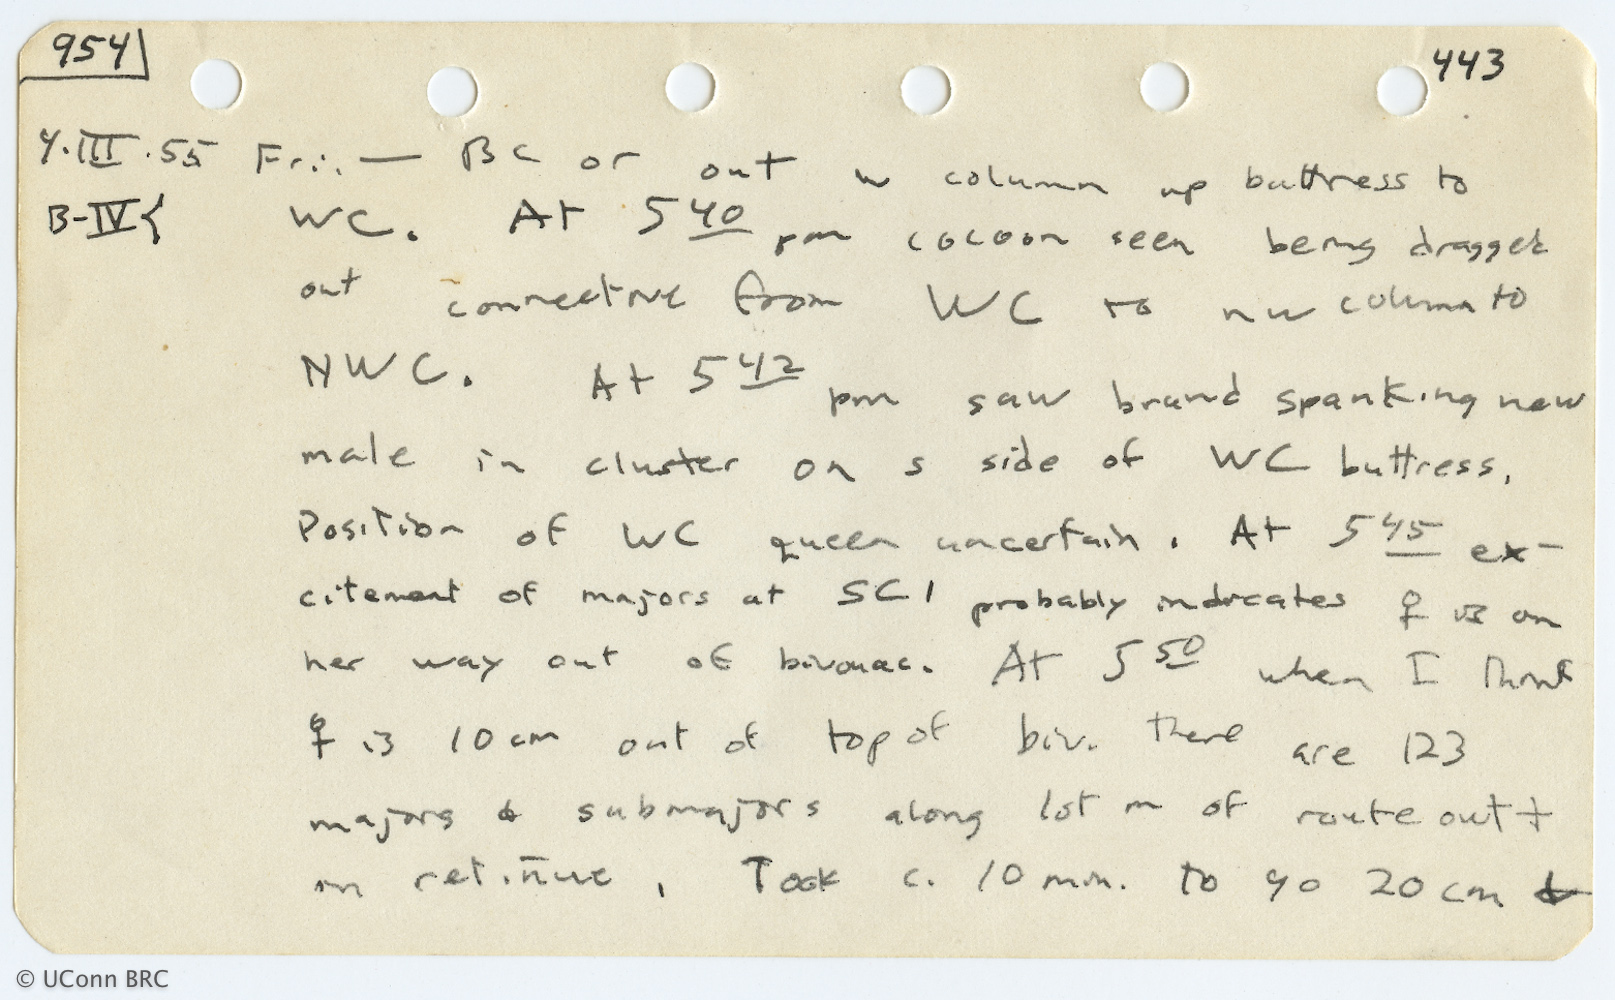 954 443
4.III.55 Fri. — BC or out w column up buttress to
B-IV{ WC. At 5 40 pm cocoon seen being dragged
out connective from WC to nw column to
NWC. At 5 42 pm saw brand spanking new
male in cluster on s side of WC buttress.
Position of WC queen uncertain. At 5 45 ex-
citement of majors at SC1 probably indicates ♀ is on
her way out of bivouac. At 5 50 when I think
♀ is 10 cm out of top of biv. there are 123
majors & submajors along 1st m of route out +
in retinue. Took c. 10 min. to go 20 cm &
© UConn BRC